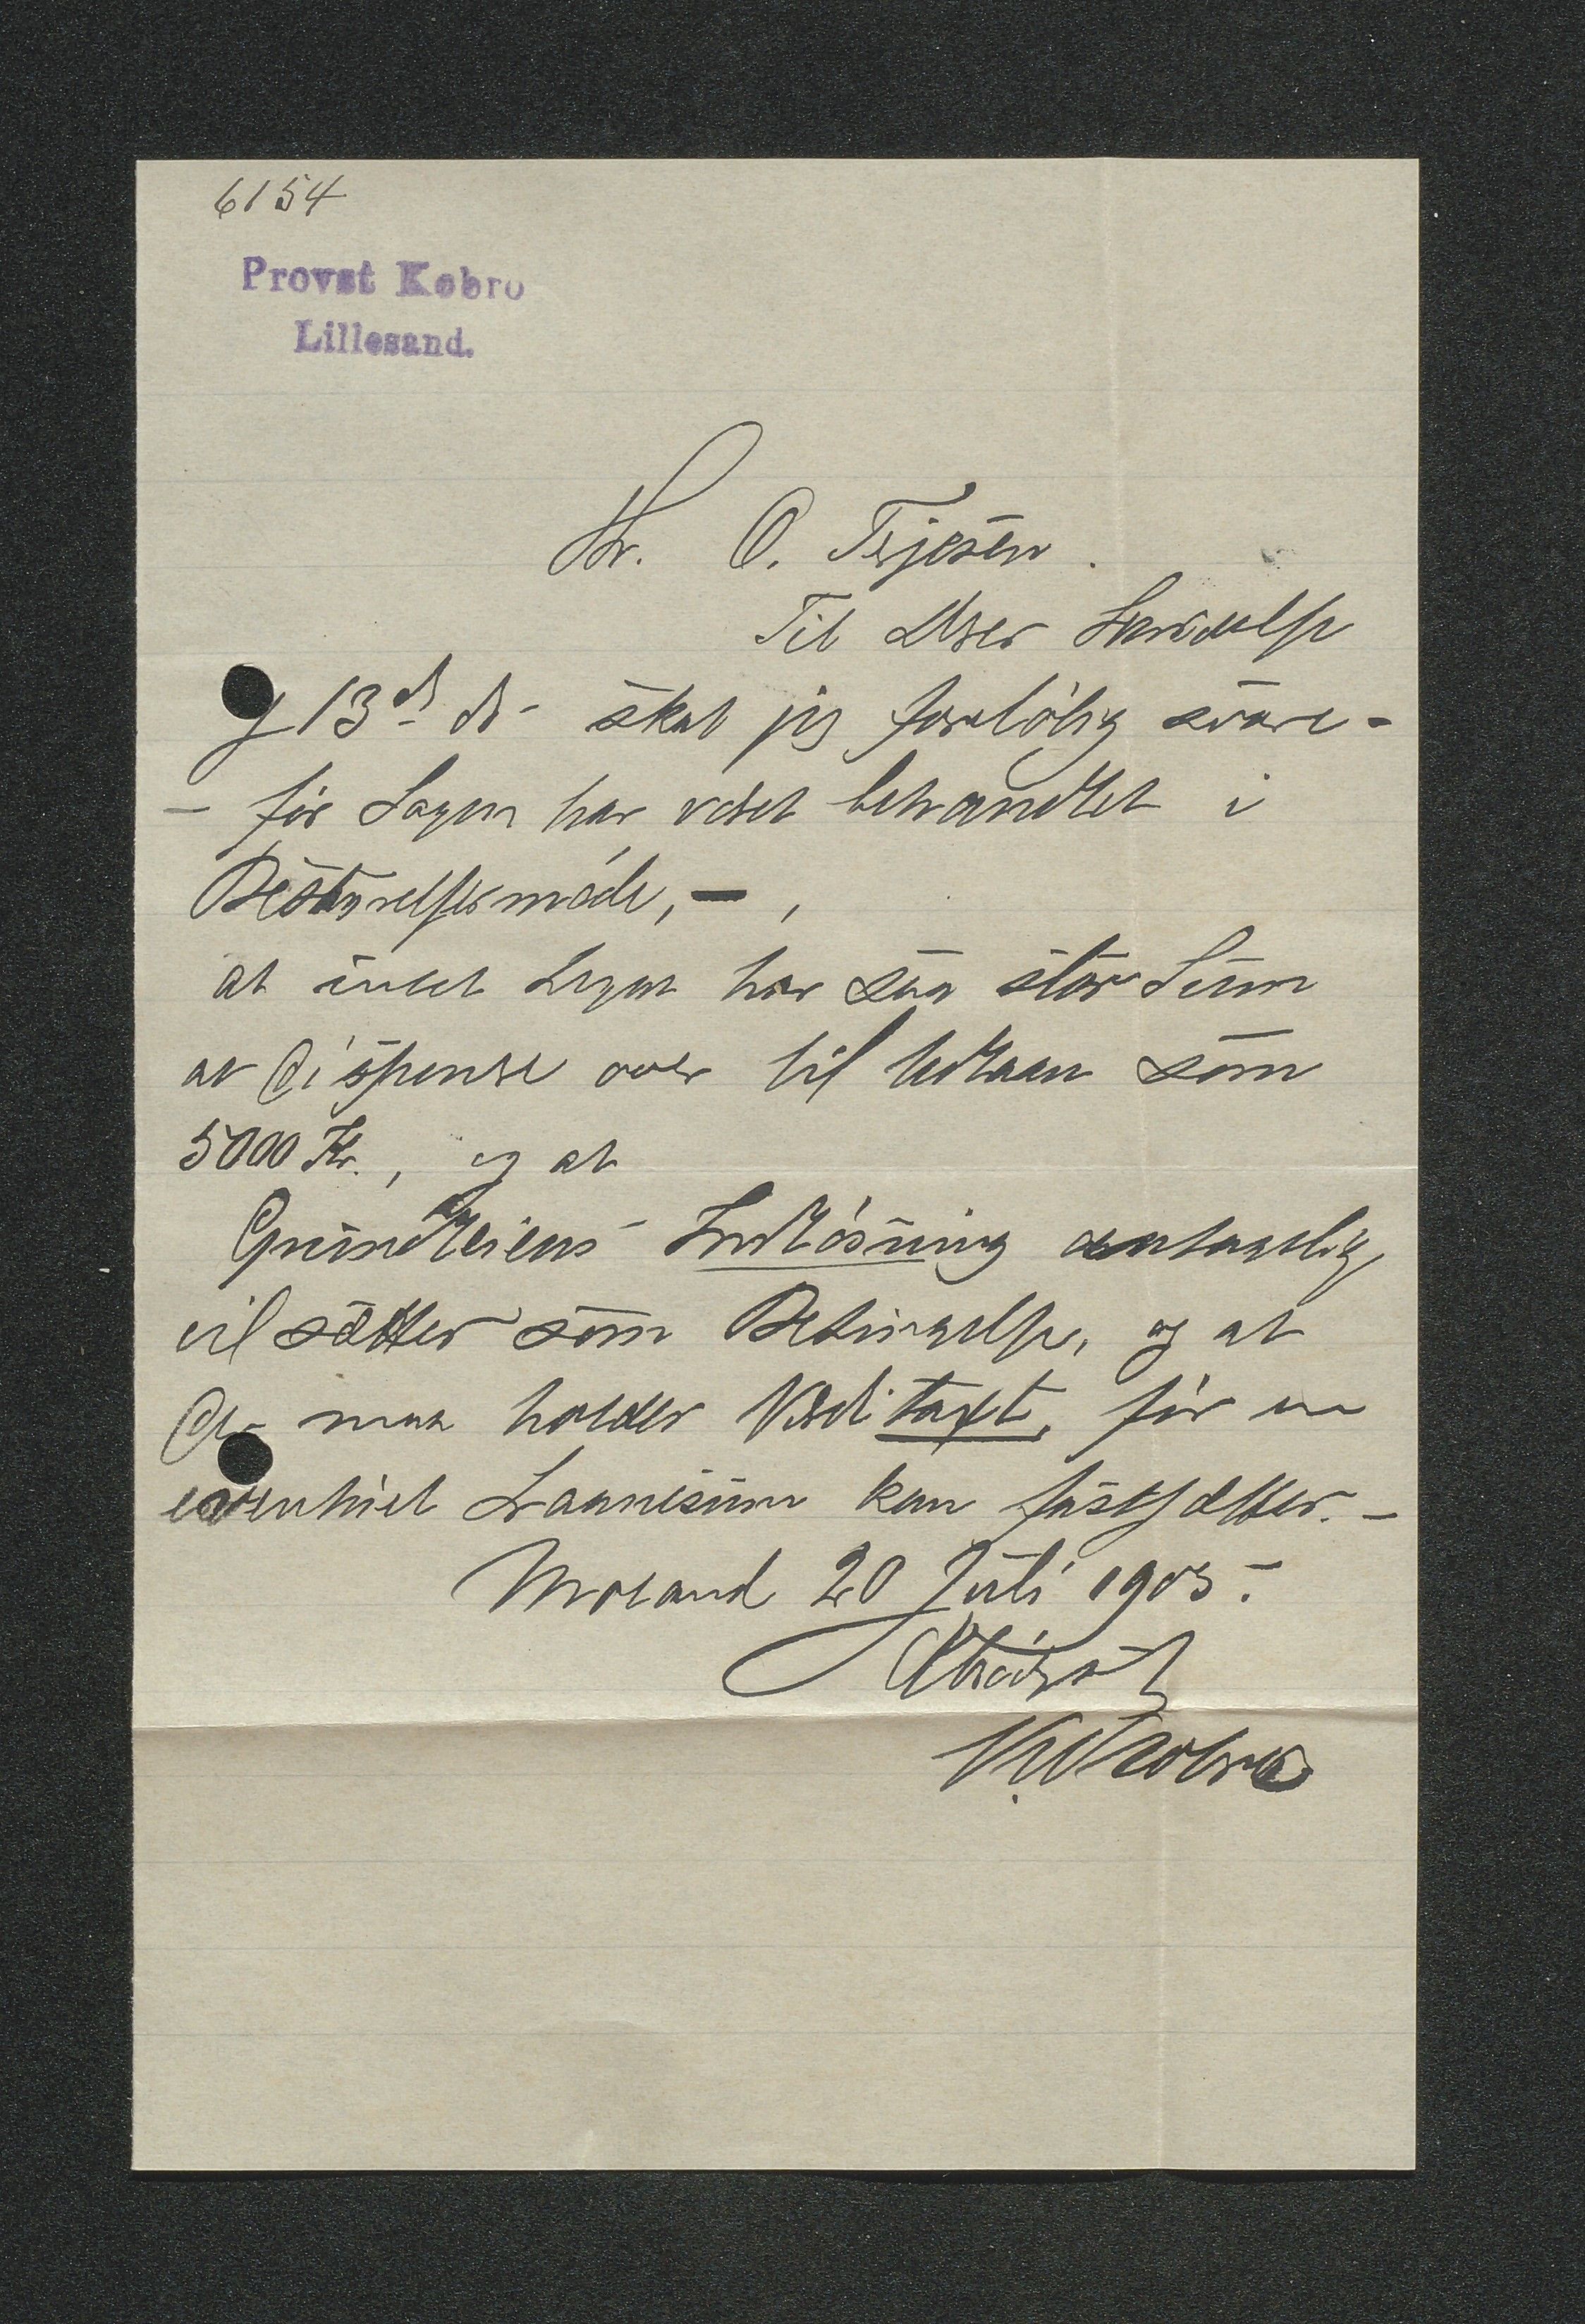 6154
Provst Kobro
Lillesand.
Hr. O. Terjesen.
Til Deres Skrivelse
af 13de ds skal jeg foreløbig svare -
- før Sagen har været behandlet i
Bestyrelsesmøde, - ,
at intet Legat har saa stor Sum
at disponere over til Udlaan som
5000 Kr., og at
Grundleiens Indløsning antagelig
vil sættes som Betingelse, og at
der maa holdes Værditaxt, før en
eventuel Laanesum kan fastsættes. -
Moland 20 Juli 1905.
Ærbødigst
Kobro